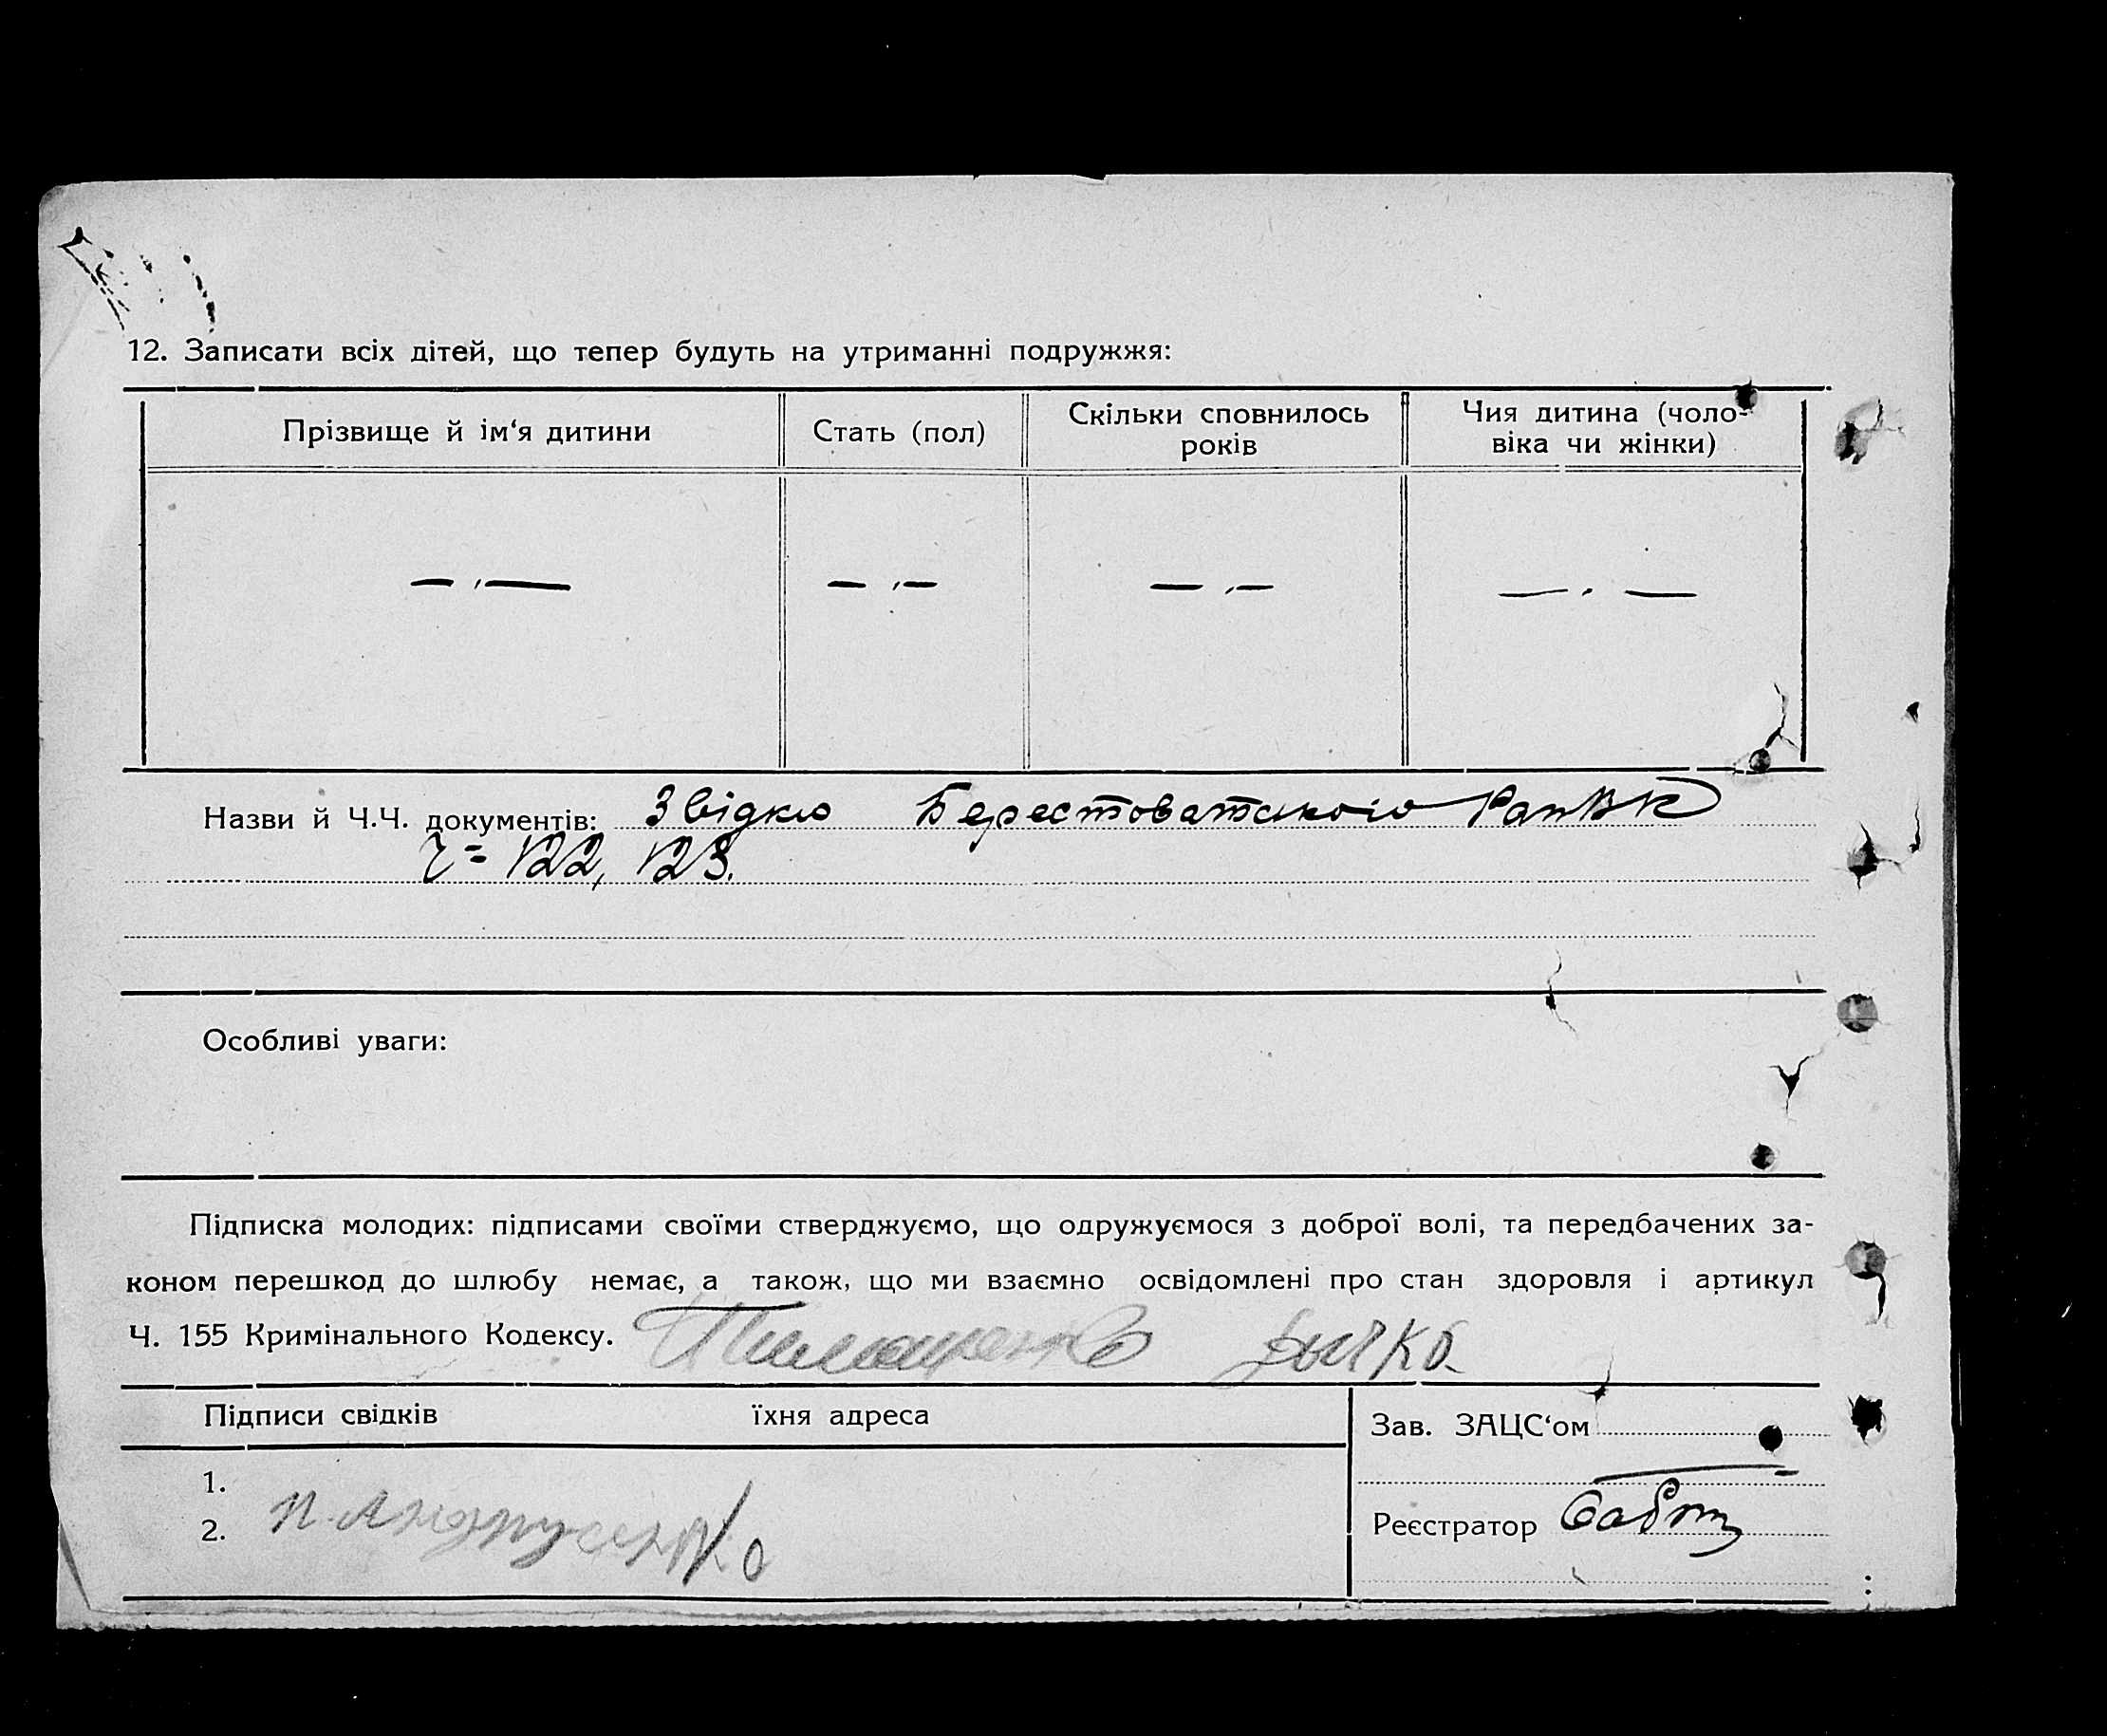 12. Записати всіх дітей, що тепер будуть на утриманні подружжя:
Прізвище й ім‘я дитини
Стать (пол)
Скільки сповнилось
років
Чия дитина (чоло-
віка чи жінки)
Назви й Ч.Ч. документів: Звідка Берестоватського
Ч= 122, 123.
Особливі уваги:
Підписка молодих: підписами своїми стверджуємо, що одружуємося з доброї волі, та передбачених за-
коном перешкод до шлюбу немає, а також, що ми взаємно освідомлені про стан здоровля і артикул
Ч. 155 Кримінального Кодексу.
Підписи свідків їхня адреса
Зав. ЗАЦС‘ом
1.
2. П. Андрусенко
Реєстратор